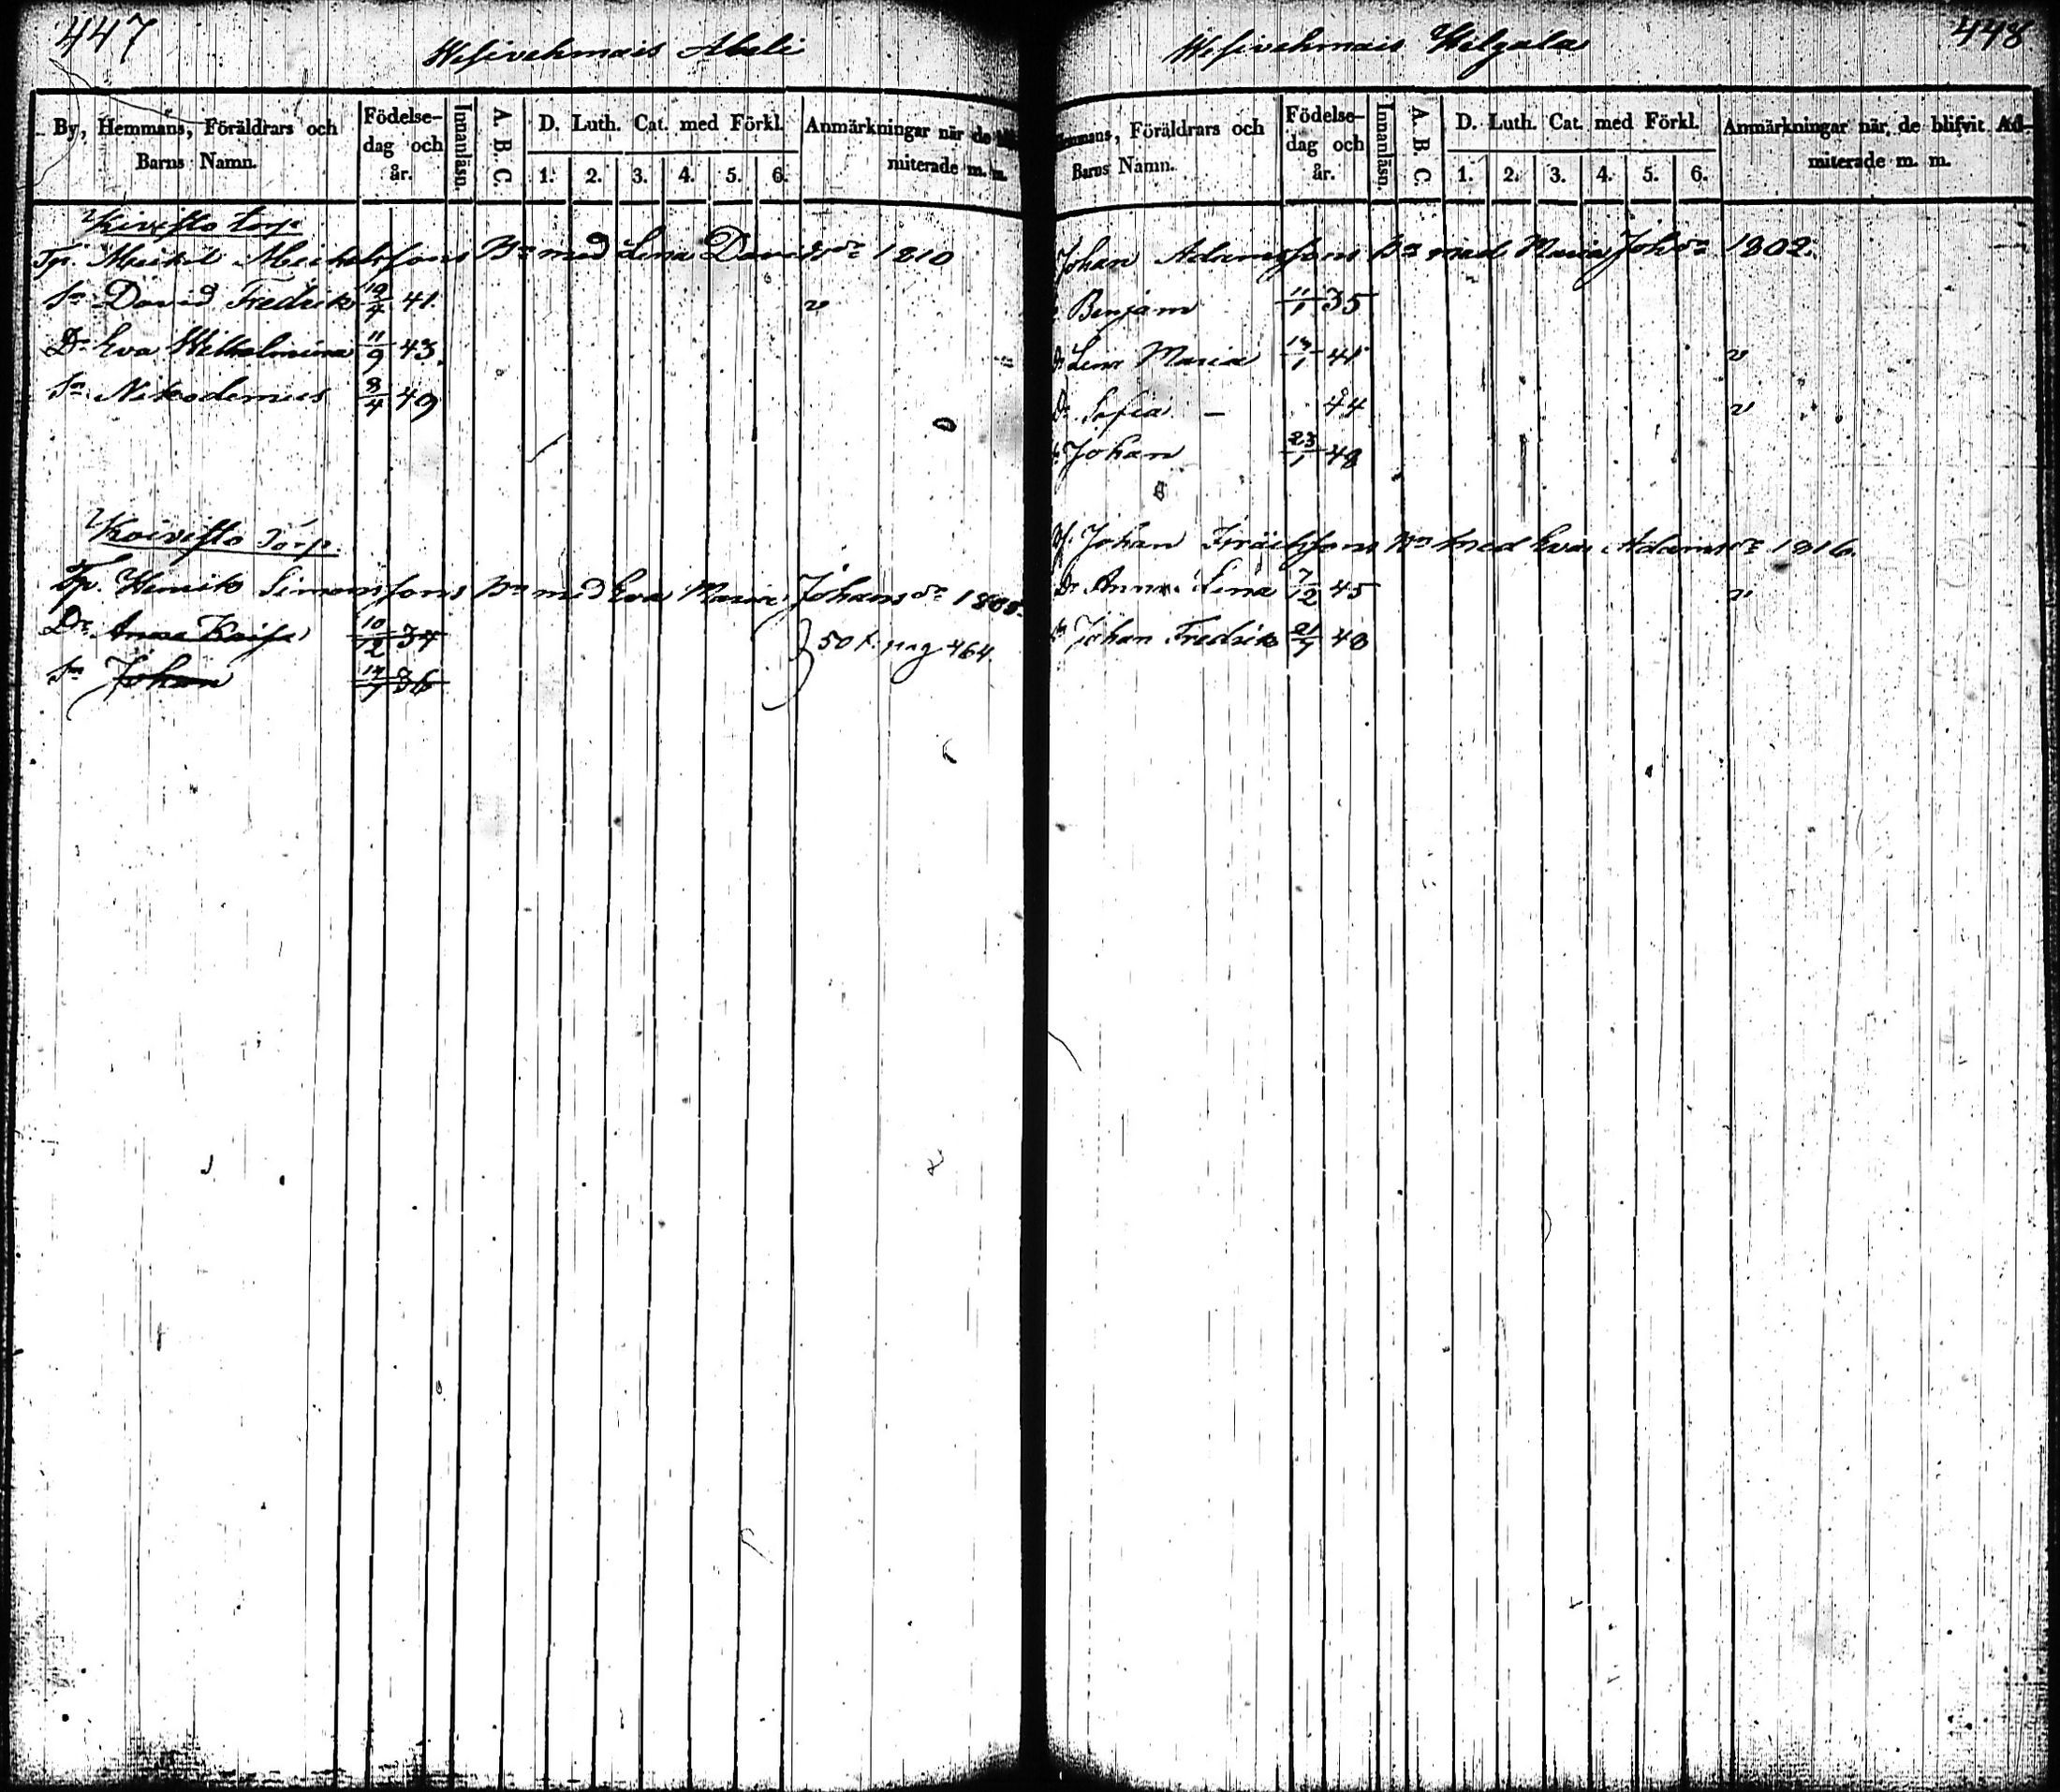 447
Wesivehmais Abeli
By, Hemmans, Föräldrars och Barns Namn.
Födelse-dag och år.
Innanläsn.
A. B. C.
D. Luth. Cat. med Förkl.
1. 2. 3. 4. 5. 6.
Anmärkningar när de
miterade m. m.
Kivisto torp
Tp. Meikil Michelsson Bn med Lena Davidsdr 1810
Sn David Fredrik 19/4 41. v
Dr Eva Wilhelmina 11/9 43.
Sn Nikodemus 8/4 49
Koivisto Torp.
Tp. Henrik Simonssons Bn med Eva Maria Johansdr
Dr Anna Kaisa 10/12 34
} 50 f. pag 464.
Sn Johan 14/7 36
448
Wesivehmais
Hemmans, Föräldrars och Barns Namn.
Födelse-dag och år.
Innanläsn.
A. B. C.
D. Luth. Cat. med Förkl.
1. 2. 3. 4. 5. 6.
Anmärkningar när de blifvit Ad-
miterade m. m.
Johan Adamssons Bn med Maria Johsdr 1802.
Benjam 11/1 35
Dr Lena Maria 41 v
Dr Sofia — 44 v
Johan 23/1 48
Johan Bn med Eva Adamsdr 1816.
Dr Anna Lena 7/12 45 v
Sn Johan Fredrik 21/7 48